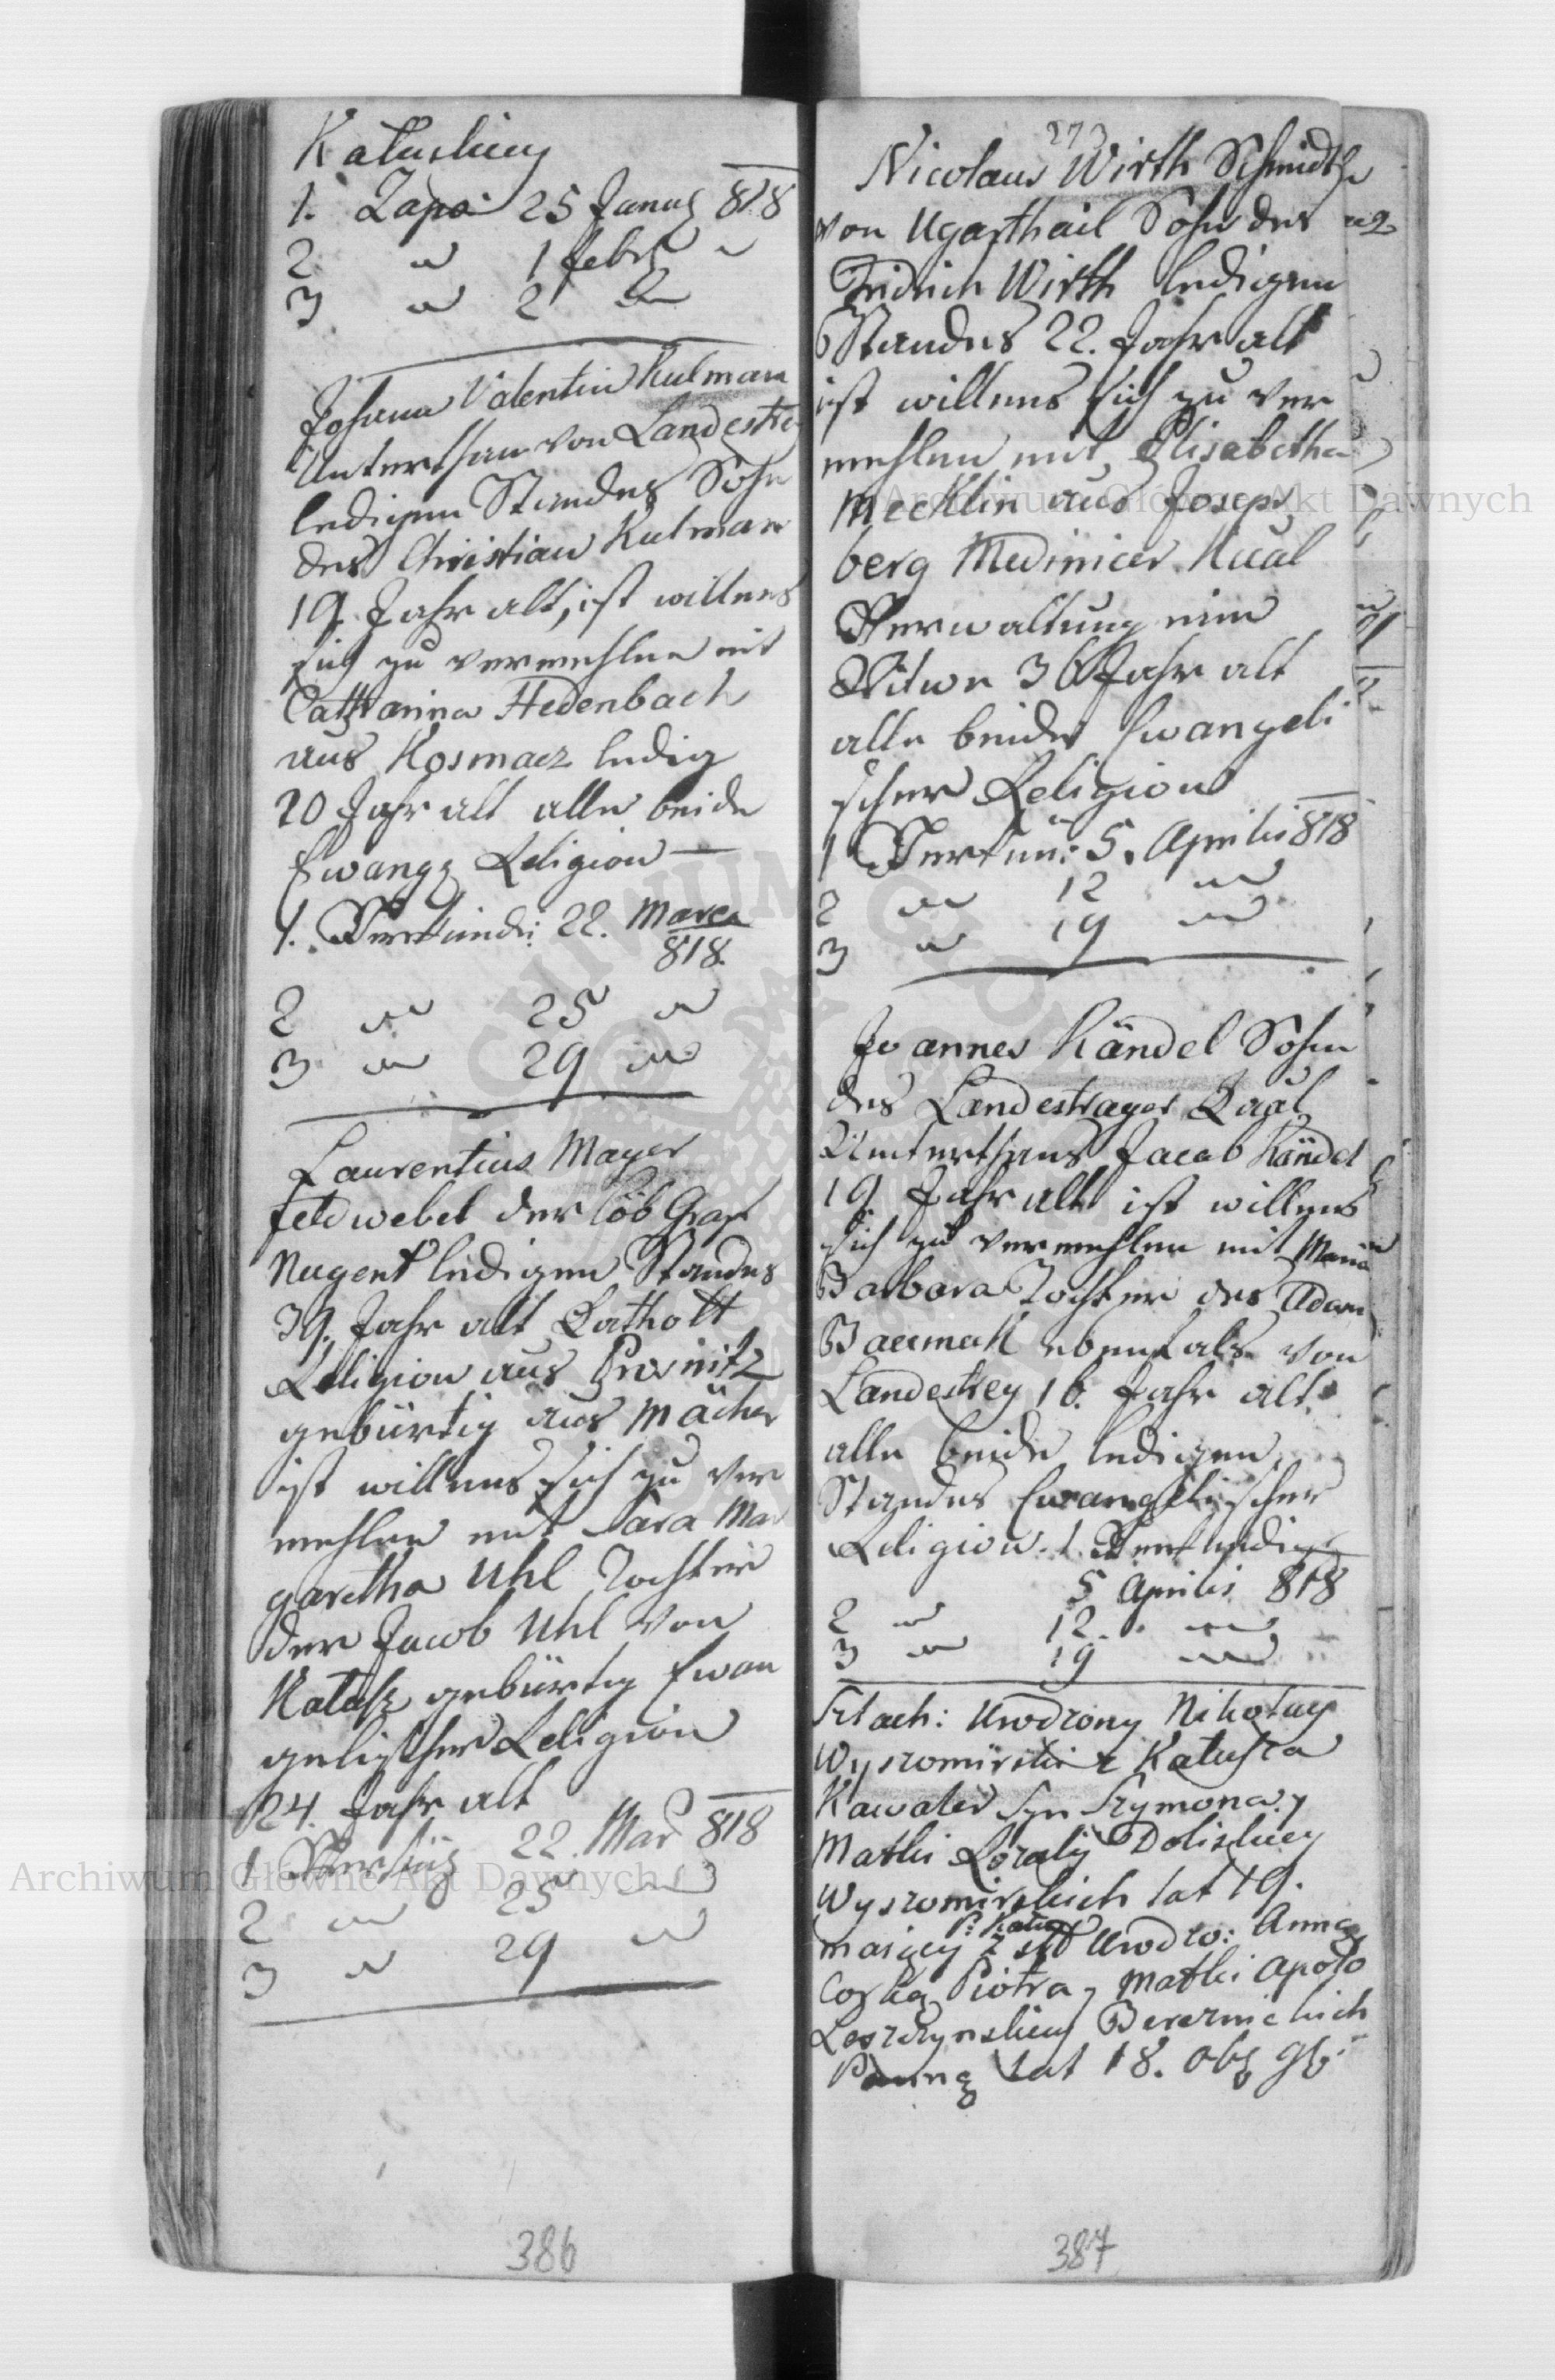 Kałuskiey
1. Zapo: 25 Januar 818
2 " 1 Febr "
3 " 2 "
Johann Valentin Kulman
Unterthan von Landestrey
ledigen Standes Sohn
des Christian Kulman
19 Jahr alt, ist willens
sich zu vermehlen mit
Catharina Hedenbach
aus Kosmacz ledig
20 Jahr alt alle beide
Ewang Religion
1. Verkündi: 22. Marca
818.
2 " 25 "
3 " 29 "
Laurentius Mayer
feldwebel der löb Graf
Nugent ledigen Standes
39. Jahr alt Catholi
Religion aus Prosnitz
gebürtig aus Mächer
ist willens sich zu ver
mehlen mit Sara Mar
garetha Uhl Tochter
der Jacob Uhl von
Kałusz gebürtig Ewan
gelischer Religion
24. Jahr alt
1 22. Mar 818
2 " 25 "
3 " 29 "
386
273
Nicolaus Wirth Schmidt
von Ugarsthail Sohn des
Fridrich Wirth ledigen
Standes 22. Jahr alt
ist willens sich zu ver
mehlen mit Elisabetha
Mecklin aus Joseps
berg Medinicer Kaal
Verwaltung eine
Witwe 36 Jahr alt
alle beide Ewangeli
scher Religion
1 Verkün: 5. Aprilis 818
2 " 12 "
3 " 19 "
Joannes Kändel Sohn
des Landestreyer Kaal
Unterthans Jacob Kändel
19 Jahr alt ist willens
sich zu vermehlen mit Maria
Barbara Tochter des Adam
ebenfals von
Landestrey 16. Jahr alt
alle beide ledigen
Standes Ewangelischer
Religion. 1. Verkündig
5 Aprilis 818
2 " 12. "
3 " 19 "
Szlach: Urodzony Nikołay
Wyszomirski z Kałusza
Kawaler Syn Szymona y
Matki Rozalij Doliskiey
Wyszomirskich lat 19.
P: Kato
maiący z Urodzo: Anną
Corką Piotra y Matki Apolo
Leszczynskiey Bereznickich
Panną lat 18.
387
Archiwum Główne Akt Dawnych
Archiwum Główne Akt Dawnych